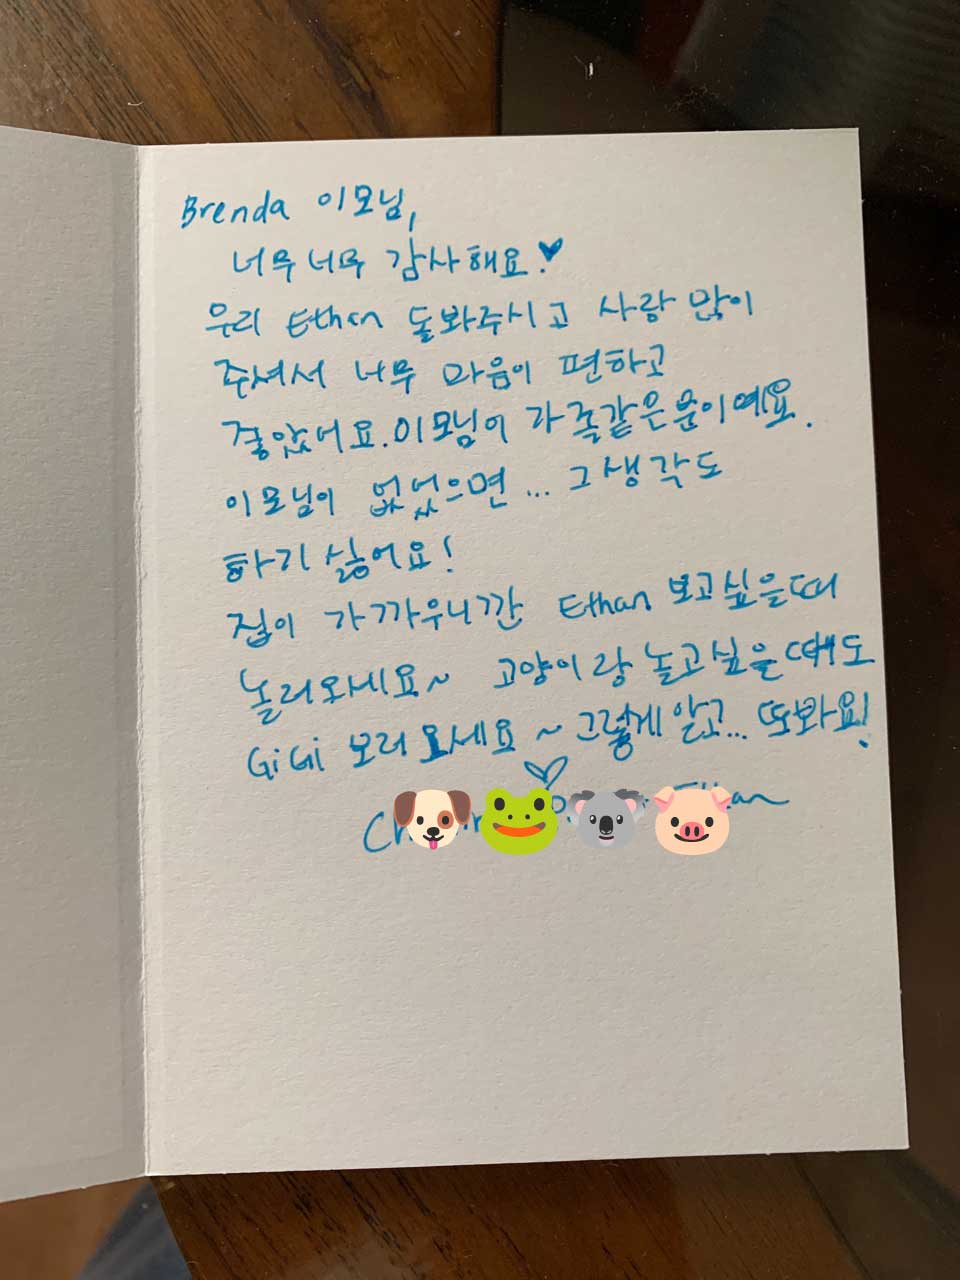 Brenda 이모님,
너무너무 감사해요.♥
우리 Ethan 돌봐주시고 사랑 많이
주셔서 너무 마음이 편하고
좋았어요. 이모님이 가족같은 분이예요.
이모님이 없었으면... 그 생각도
하기 싫어요!
집이 가까우니깐 Ethan 보고싶을때
놀러오세요~ 고양이랑 놀고싶을때도
GiGi 보러 오세요~ 그렇게 알고... 또봐요!
♡